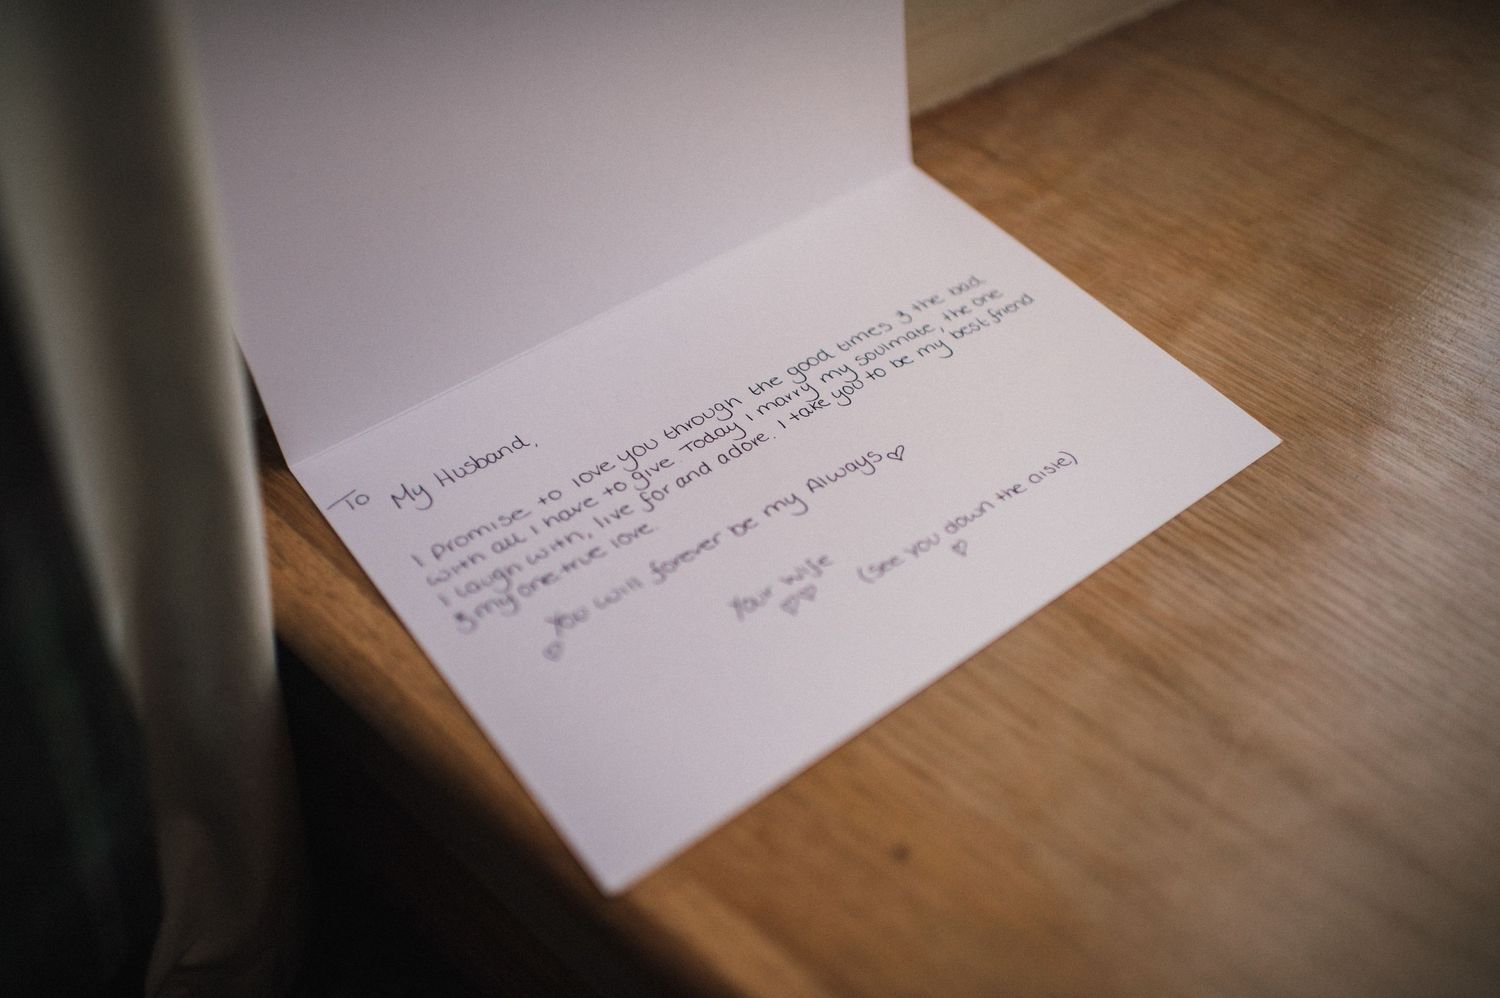 To My Husband,
I promise to love you through the good times & the bad
with all I have to give. Today I marry my soulmate, the one
I laugh with, live for and adore. I take you to be my best friend
& my one true love.
You will forever be my Always ♡
♡
Your wife
♡♡
(see you down the aisle)
♡